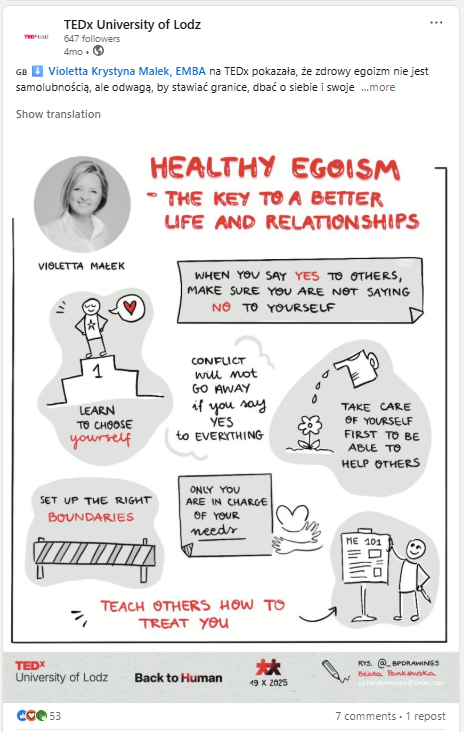 TEDx University of Lodz
647 followers
4mo •
GB ⬇️ Violetta Krystyna Malek, EMBA na TEDx pokazała, że zdrowy egoizm nie jest
samolubnością, ale odwagą, by stawiać granice, dbać o siebie i swoje ...more
Show translation
HEALTHY EGOISM
- THE KEY TO A BETTER
LIFE AND RELATIONSHIPS
VIOLETTA MAŁEK
WHEN YOU SAY YES TO OTHERS,
MAKE SURE YOU ARE NOT SAYING
NO TO YOURSELF
1
LEARN
TO CHOOSE
yourself
CONFLICT
will not
GO AWAY
if you say
YES
to EVERYTHING
TAKE CARE
OF YOURSELF
FIRST TO BE
ABLE TO
HELP OTHERS
SET UP THE RIGHT
BOUNDARIES
ONLY YOU
ARE IN CHARGE
OF YOUR
needs
ME 101
TEACH OTHERS HOW TO
TREAT YOU
TEDx
University of Lodz
Back to Human
19 X 2025
RYS. @_BPDRAWINGS
Beata Pankowska
53
7 comments • 1 repost